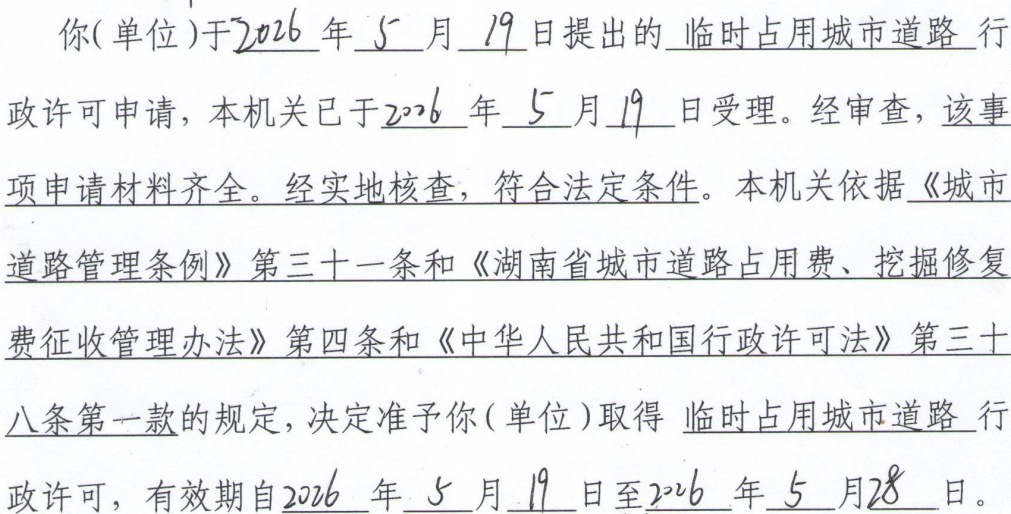 你(单位)于2026年5月19日提出的 临时占用城市道路 行
政许可申请，本机关已于2026年5月19日受理。经审查，该事
项申请材料齐全。经实地核查，符合法定条件。本机关依据《城市
道路管理条例》第三十一条和《湖南省城市道路占用费、挖掘修复
费征收管理办法》第四条和《中华人民共和国行政许可法》第三十
八条第一款的规定，决定准予你(单位)取得 临时占用城市道路 行
政许可，有效期自2026年5月19日至2026年5月28日。